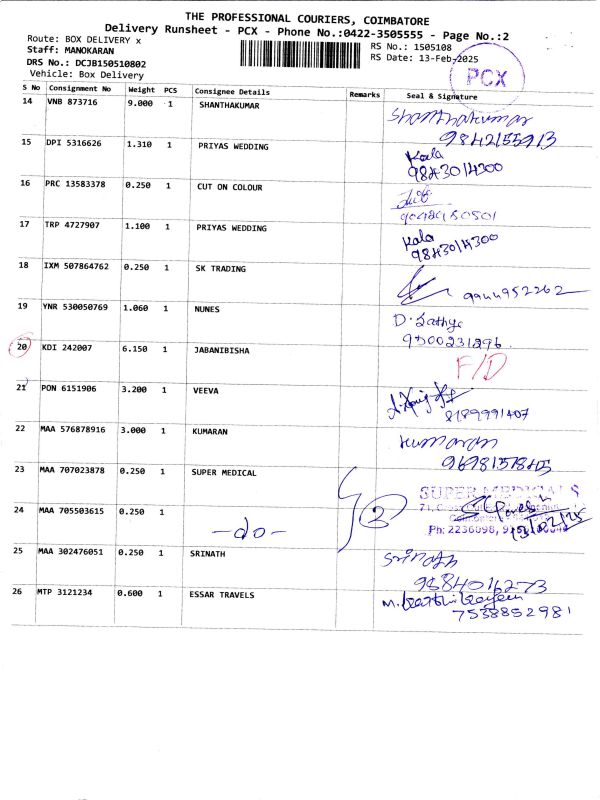 THE PROFESSIONAL COURIERS, COIMBATORE
Delivery Runsheet - PCX - Phone No.:0422-3505555 - Page No.:2
Route: BOX DELIVERY x
Staff: MANOKARAN
DRS No.: DCJB150510802
Vehicle: Box Delivery
RS No.: 1505108
RS Date: 13-Feb-2025
PCX
S No Consignment No Weight PCS Consignee Details Remarks Seal & Signature
14 VNB 873716 9.000 1 SHANTHAKUMAR Shanthakumar
9842155913
15 DPI 5316626 1.310 1 PRIYAS WEDDING Kala
9843014300
16 PRC 13583378 0.250 1 CUT ON COLOUR
9048980501
17 TRP 4727907 1.100 1 PRIYAS WEDDING Kala
9843014300
18 IXM 507864762 0.250 1 SK TRADING 9944952262
19 YNR 530050769 1.060 1 NUNES D. Sathya
9500231296.
20 KDI 242007 6.150 1 JABANIBISHA F/D
21 PON 6151906 3.200 1 VEEVA
8189991407
22 MAA 576878916 3.000 1 KUMARAN Kumaran
9698137845
23 MAA 707023878 0.250 1 SUPER MEDICAL SUPER MEDICALS
24 MAA 705503615 0.250 1 -do- 2
Ph: 2236098,
13/02/25
25 MAA 302476051 0.250 1 SRINATH Srinath
9384016273
26 MTP 3121234 0.600 1 ESSAR TRAVELS M. Karthikeyan
7538852981